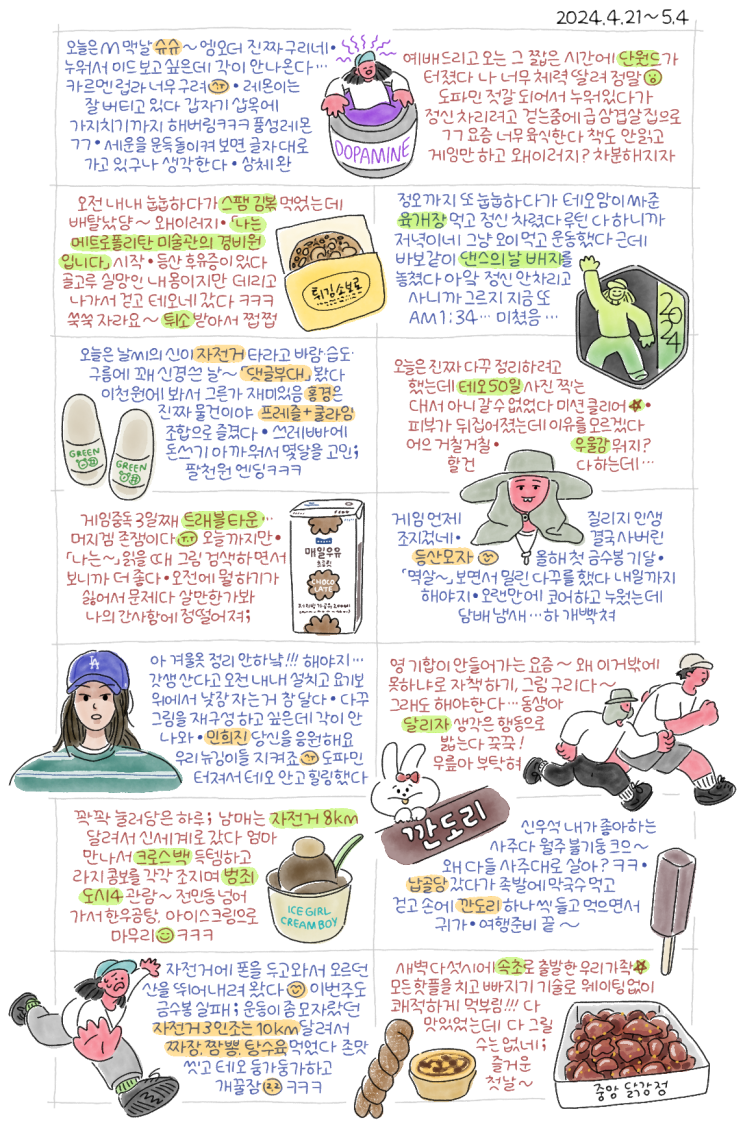 2024.4.21~5.4
오늘은 M 맥날 슈슈~ 엠오더 진짜 구리네·
누워서 미드보고싶은데 각이 안나온다…
카르멘 럽라 너무 구려 · 레몬이는
잘 버티고 있다 갑자기 삽목에
가지치기까지 해버림ㅋㅋㅋ 풍성레몬
ㄱㄱ· 세운을 문득돌이켜 보면 글자대로
가고 있구나 생각한다 · 상체 완
DOPAMINE
예배드리고 오는 그 짧은 시간에 단원드가
터졌다 나 너무 체력 딸려 정말
도파민 젓갈 되어서 누워있다가
정신 차리려고 걷는중에 급 삼겹살 집으로
ㄱㄱ 요즘 너무 육식한다 책도 안읽고
게임만 하고 왜이러지? 차분해지자
오전 내내 눕눕하다가 스팸 김볶 먹었는데
배탈났당~ 왜이러지·「나는
메트로폴리탄 미술관의 경비원
입니다」시작· 등산 후유증이 있다
골고루 실망인 내 몸이지만 데리고
나가서 걷고 테오네 갔다 ㅋㅋㅋ
쑥쑥 자라요~ 튀소 받아서 쩝쩝
튀김소보로
정오까지 또 눕눕하다가 테오맘이 싸준
육개장 먹고 정신 차렸다 루틴 다 하니까
저녁이네 그냥 오이 먹고 운동했다 근데
바보같이 댄스의 날 배지를
놓쳤다 아악 정신 안차리고
사니까 그르지 지금 또
AM 1:34… 미쳤음…
2024
오늘은 날씨의 신이 자전거 타라고 바람·습도·
구름에 꽤 신경쓴 날~「댓글부대」봤다
이천원에 봐서 그른가 재미있음 홍경은
진짜 물건이야 프레즐+콜라임
조합으로 즐겼다 · 쓰레빠에
돈쓰기 아까워서 몇달을 고민;
팔천원 엔딩ㅋㅋㅋ
GREEN
GREEN
오늘은 진짜 다꾸 정리하려고
했는데 테오50일 사진 찍는
대서 아니 갈 수 없었다 미션 클리어 ·
피부가 뒤집어졌는데 이유를 모르겠다
어으 거칠거칠· 우울감 뭐지?
할건 다 하는데…
게임중독 3일째 트래블타운…
머지겜 존잼이다 T.T 오늘까지만·
「나는~」읽을 때 그림 검색하면서
보니까 더 좋다· 오전에 뭘하기가
싫어서 문제다 살만한가봐
나의 간사함에 정떨어져;
매일우유
초콜릿
CHOCO
LATE
게임 언제 질리지 인생
조지겄네· 결국 사버린
등산모자 올해 첫 금수봉 기달·
「멱살~」보면서 밀린 다꾸를 했다 내일까지
해야지· 오랜만에 코어하고 누웠는데
담배 냄새…하 개빡쳐
LA
아 겨울옷 정리 안하냨!!! 해야지…
갓생 산다고 오전 내내 설치고 요기보
위에서 낮잠 자는거 참 달다· 다꾸
그림을 재구성 하고 싶은데 각이 안
나와· 민희진 당신을 응원해요
우리 뉴깅이들 지켜죠 도파민
터져서 테오 안고 힐링했다
영 기합이 안들어가는 요즘~ 왜 이거밖에
못하냐로 자책하기, 그림 구리다~
그래도 해야한다… 동삼아
달리자 생각은 행동으로
밟는다 꾹꾹!
무릎아 부탁혀
꽉꽉 눌러담은 하루; 남매는 자전거 8km
달려서 신세계로 갔다 엄마
만나서 크로스백 득템하고
라지 콤보를 각각 조지며 범죄
도시4 관람~ 전민동 넘어
가서 한우곰탕, 아이스크림으로
마무리 ㅋㅋㅋ
ICE GIRL
CREAM BOY
깐도리
신우석 내가 좋아하는
사주다 월주 불기둥 크으~
왜 다들 사주대로 살아? ㅋㅋ·
납골당 갔다가 족발에 막국수 먹고
걷고 손에 깐도리 하나씩 들고 먹으면서
귀가· 여행준비 끝~
자전거에 폰을 두고와서 오르던
산을 뛰어내려 왔다 이번주도
금수봉 실패; 운동이 좀 모자랐던
자전거 3인조는 10km 달려서
짜장, 짬뽕, 탕수육 먹었다 존맛
씻고 테오 둥가둥가하고
개꿀잠 ㅋㅋㅋ
새벽 다섯시에 속초로 출발한 우리가족
모든 핫플을 치고 빠지기 기술로 웨이팅없이
쾌적하게 먹부림!!! 다
맛있었는데 다 그릴
수는 없네;
즐거운
첫날~
중앙 닭강정